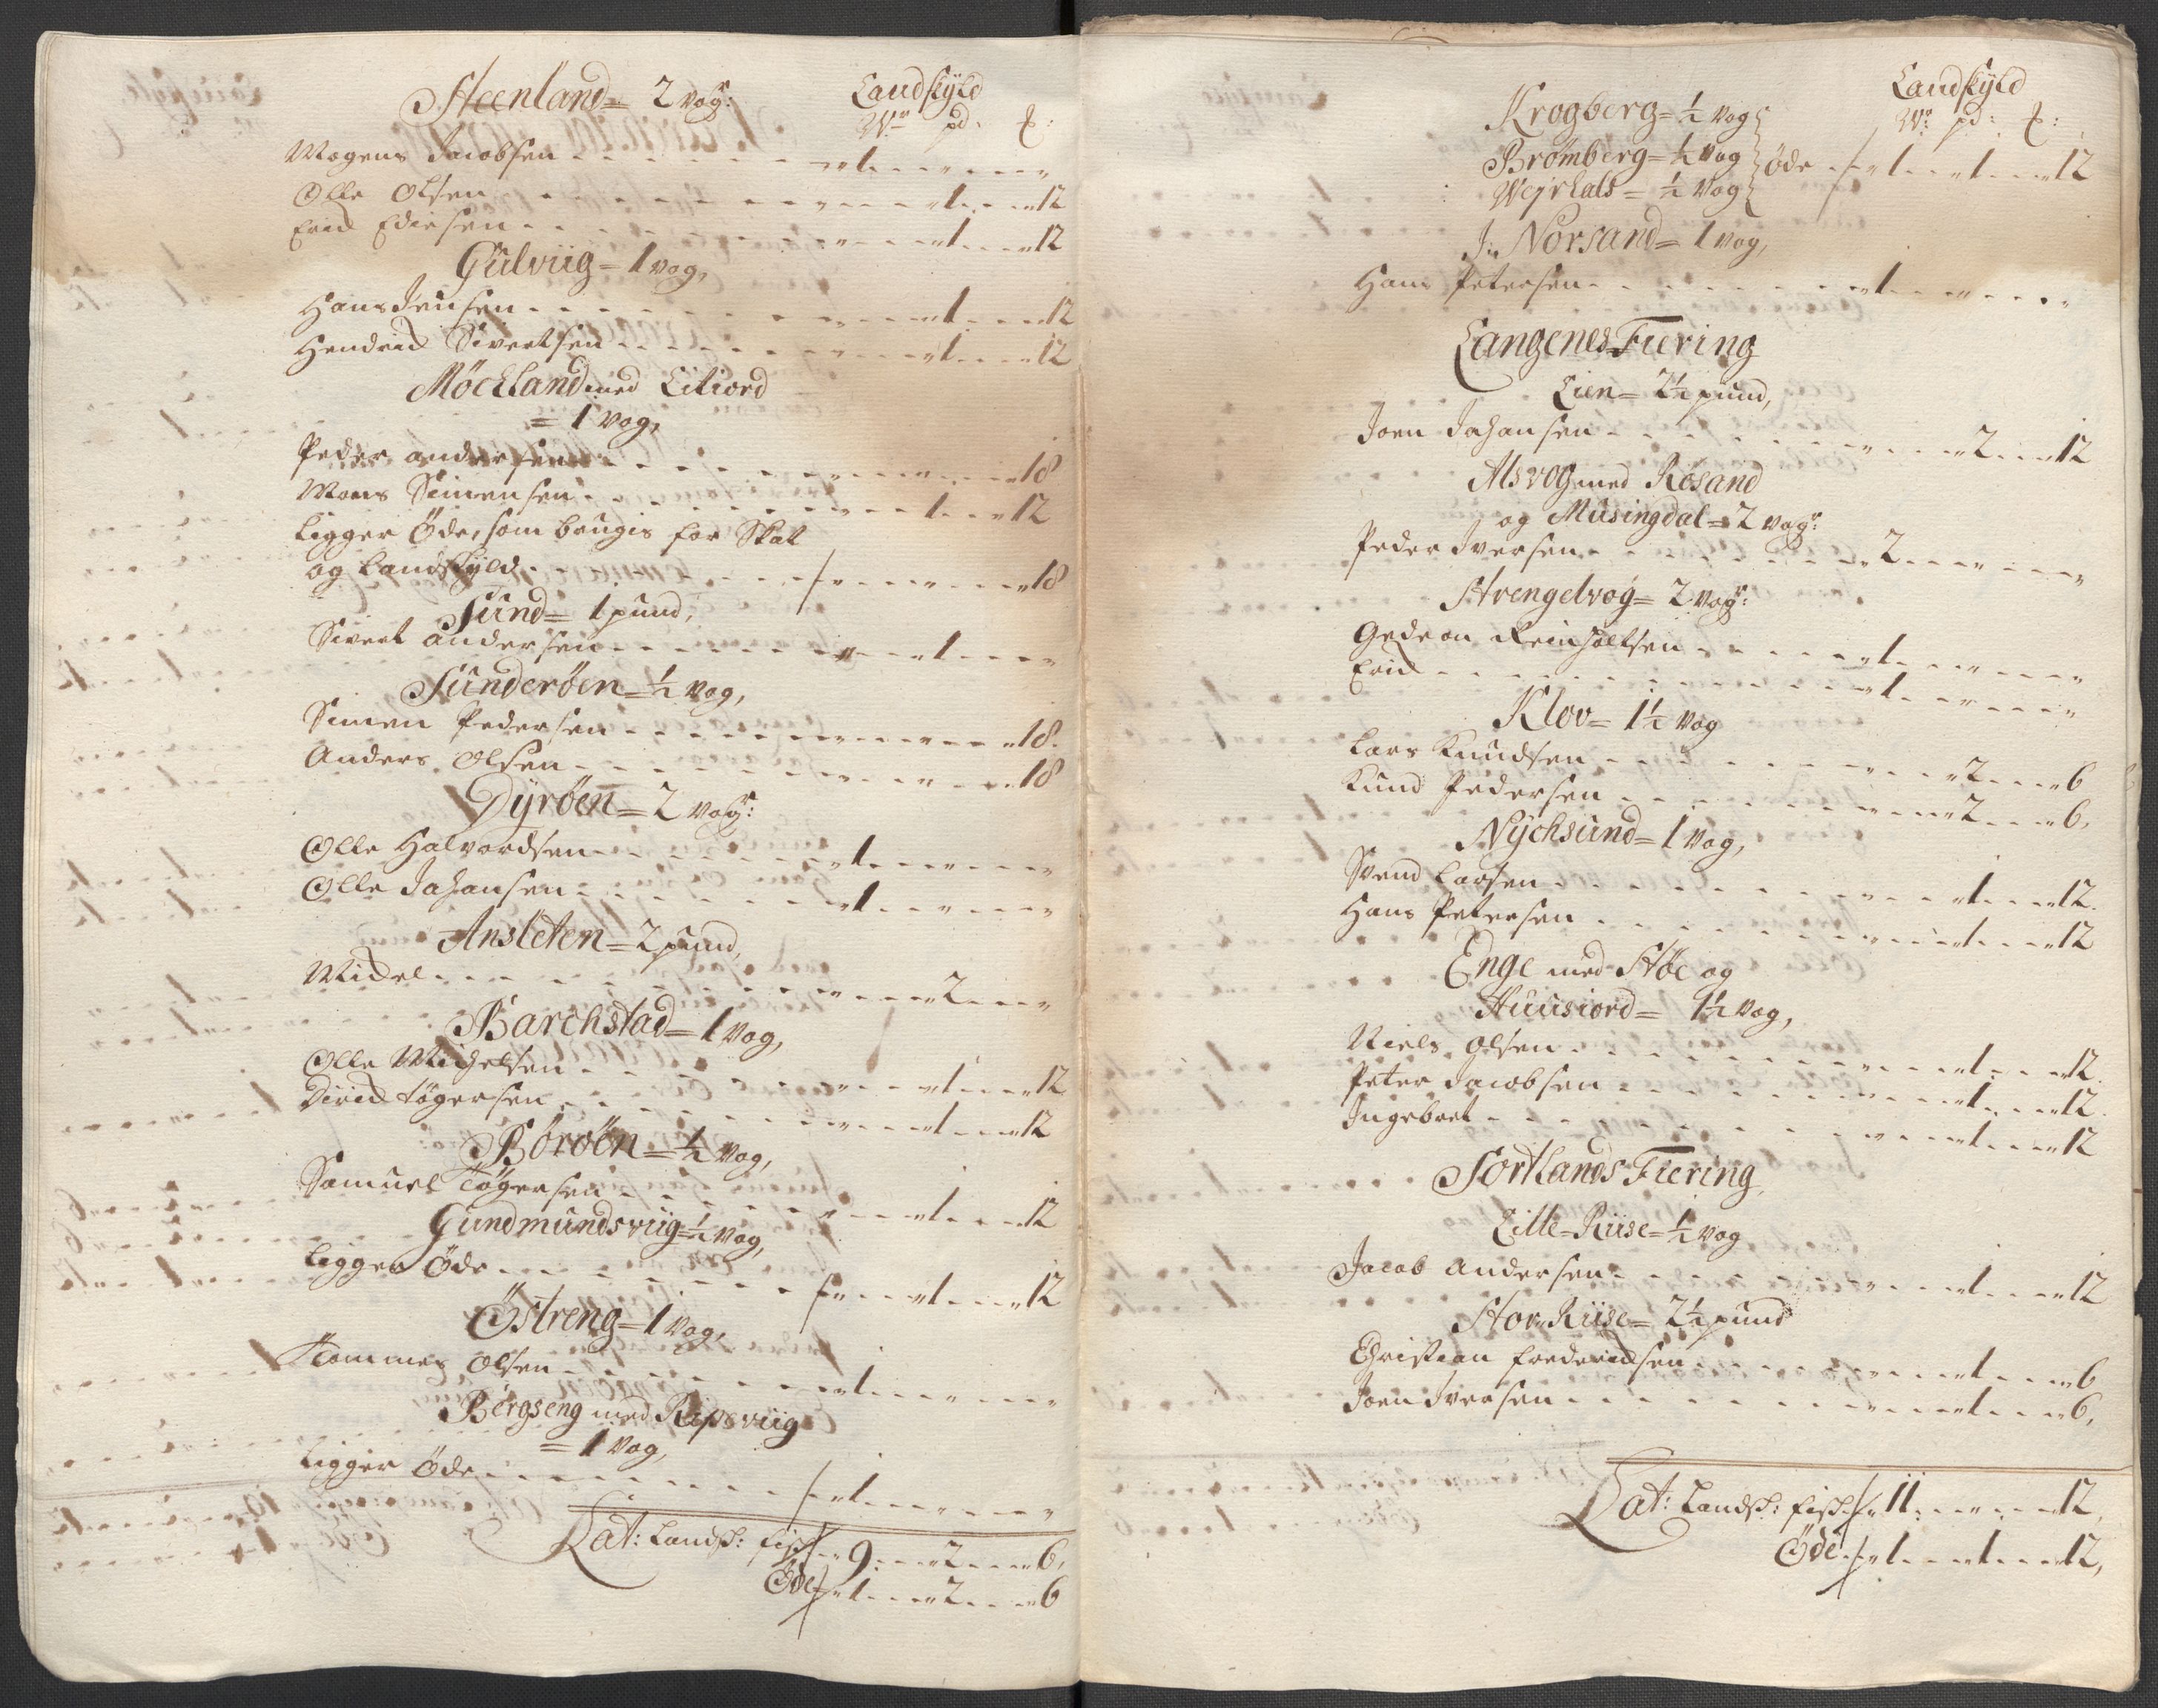 Steenland = 2 vog:r Landskyld
W:r pd: £:
Mogens Jacobsen - - - 1 - " - "
Olle Olsen - - - " - 1 - 12
Erich Edissen - - - " - 1 - 12
Gulviig = 1 vog,
Hans Jensen - - - " - 1 - 12
Hendrich Sivertsen - - - " - 1 - 12
Möckland med Litiord
= 1 vog,
Peder andersen - - - " - " - 18
Mons Simensen - - - " - 1 - 12
Ligger Öde, som brugis for Skat
og Landskyld - - - / " - " - 18
Sund = 1 pund,
Sivert andersen - - - " - 1 - "
Sunderöen = ½ vog,
Simen Pedersen - - - " - " - 18.
Anders Olsen - - - " - " - 18
Dyröen = 2 vog:r
Olle Halvordsen - - - 1 - " - "
Olle Johansen - - - 1 - " - "
Ansleten = 2 pund,
Michel - - - " - 2 - "
Barchstad = 1 vog,
Olle Michelsen - - - " - 1 - 12
Dirich tögersen - - - " - 1 - 12
Böröen = ½ vog,
Samuel Tögersen - - - " - 1 - 12
Gundmundsviig = ½ vog,
Ligger Öde - - - / " - 1 - 12
Östreng = 1 vog,
Tommes Olsen - - - 1 - " - "
Bergseng med Ripsviig
= 1 vog,
Ligger Öde - - - / 1 - " - "
Lat: Landsk: fisk / 9 - 2 - 6,
Öde / 1 - 2 - 6
Landskyld
Krogberg = ½ vog W:r pd: £:
Bromberg = ½ vog Öde - / 1 - 1 - 12
Wejrhals = ½ vog
In Norsand = 1 vog,
Hans Petersen - - - 1 - " - "
Langenes Fiering
Lien = 2½ pund,
Joen Johansen - - - " - 2 - 12
Alsvog med Rösand
og Musingdal = 2 vog:r
Peder Iversen - - - 2 - " - "
Strengelvog = 2 vog:r
Gedeon Reinholtsen - - - 1 - " - "
Erich - - - 1 - " - "
Klov = 1½ vog
Lars Knudsen - - - " - 2 - 6
Knud Pedersen - - - " - 2 - 6,
Nychsund = 1 vog,
Svend Larsen - - - " - 1 - 12.
Hans Petersen - - - " - 1 - 12
Enge med Stöe og
Huusiord = 1½ vog,
Niels Olsen - - - " - 1 - 12.
Peter Jacobsen - - - " - 1 - 12.
Ingebret - - - " - 1 - 12
Sortlands Fiering,
Lille-Riise = ½ vog
Jacob andersen - - - " - 1 - 12
Stor Riise = 2½ pund
Christian fredrichsen - - - " - 1 - 6
Joen Iversen - - - " - 1 - 6,
Lat: Landsk: fisk / 11 - " - 12,
Öde / 1 - 1 - 12,